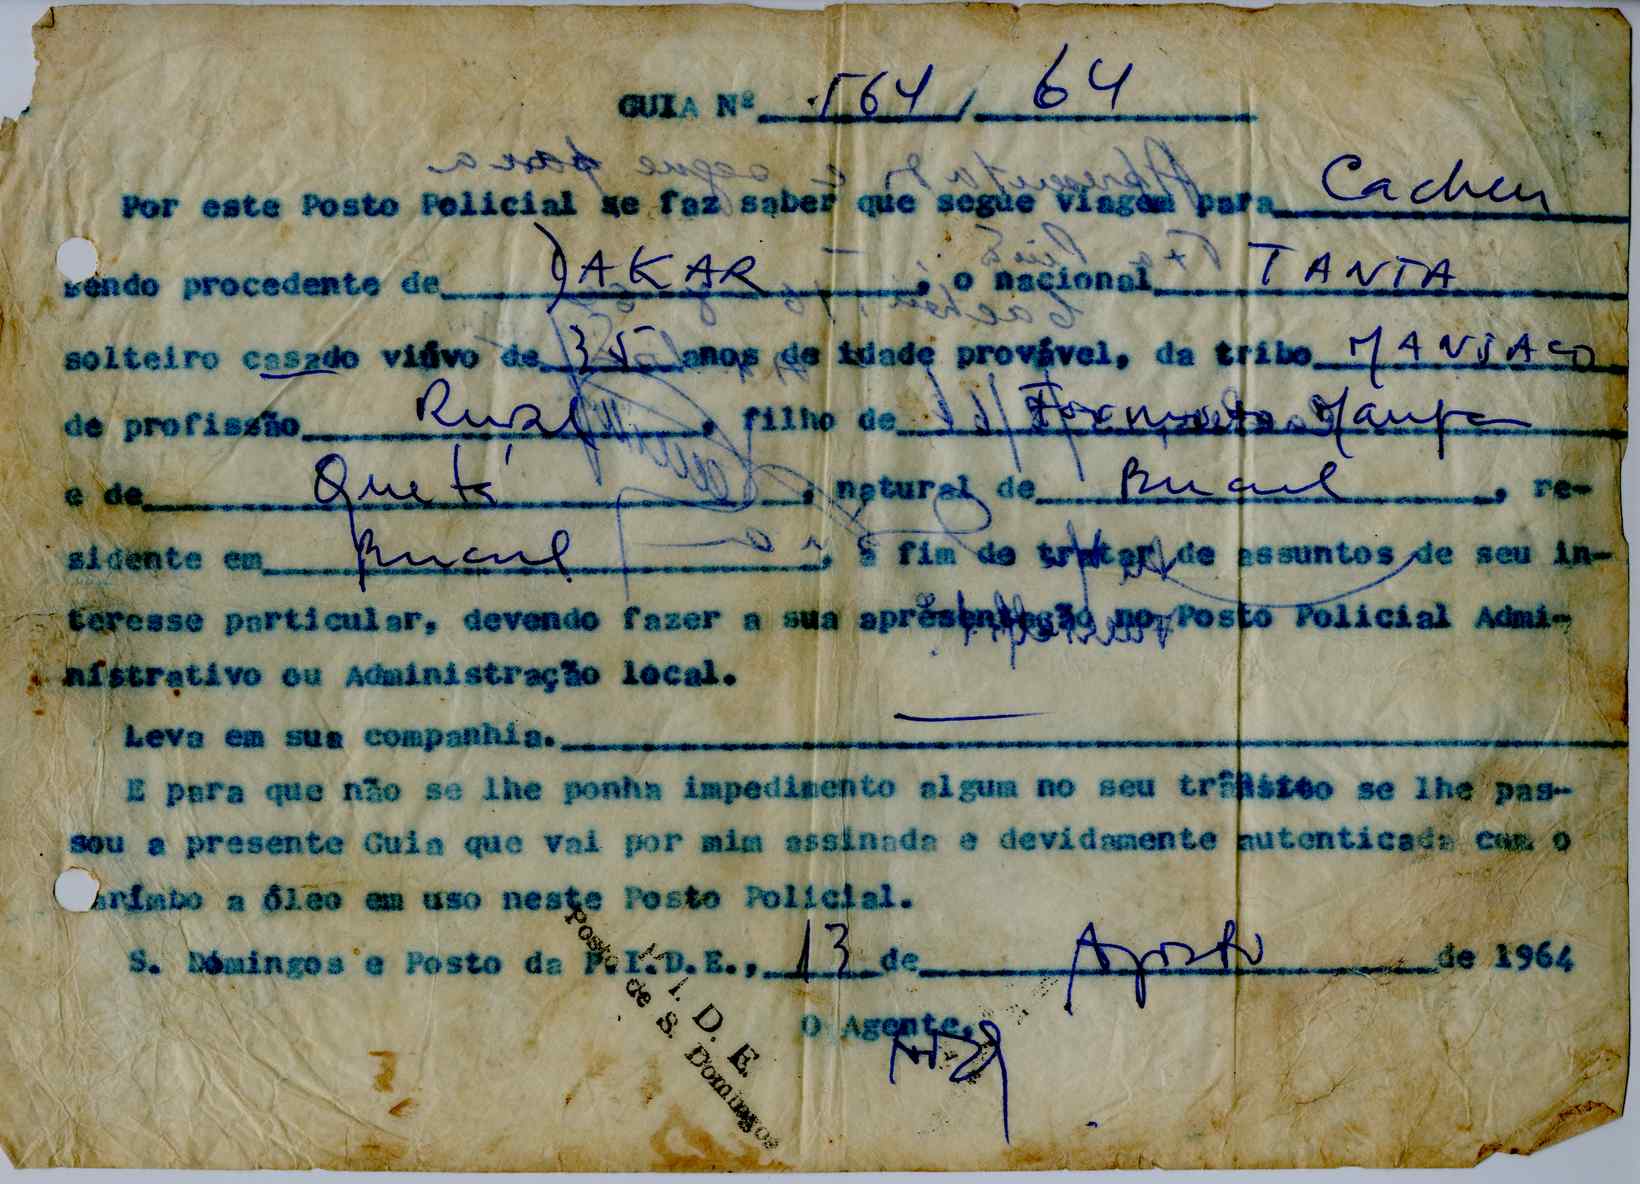 GUIA Nº 564 / 64
Por este Posto Policial se faz saber que segue viagem para Cacheu
sendo procedente de DAKAR, o nacional TANTA
solteiro casado viúvo de 35 anos de idade provável, da tribo MANJACO
de profissão Rural, filho de
e de Quetá, natural de Bucul, re-
sidente em Bucul, a fim de tratar de assuntos de seu in-
teresse particular, devendo fazer a sua apresentação no Posto Policial Admi-
nistrativo ou Administração local.
Leva em sua companhia. —
E para que não se lhe ponha impedimento algum no seu trânsito se lhe pas-
sou a presente Guia que vai por mim assinada e devidamente autenticada com o
carimbo a óleo em uso neste Posto Policial.
S. Domingos e Posto da P.I.D.E., 13 de Agosto de 1964
O Agente,
P. I. D. E.
Posto de S. Domingos